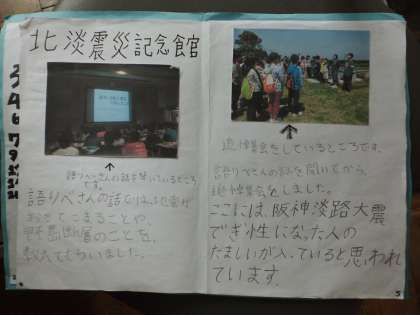 北淡震災記念館
3
4
6
7
9
↑
語りべーさんの話を聞いているところ
です。
語りべさんの話では、地震が
おきてこまることや、
野島断層のことを、
教えてもらいました。
↑
追悼集会をしているところです。
語りべさんの話を聞いてから、
追悼集会をしました。
ここには、阪神淡路大震
でぎ性になった人の
たましいが入っていると思われ
ています。
5